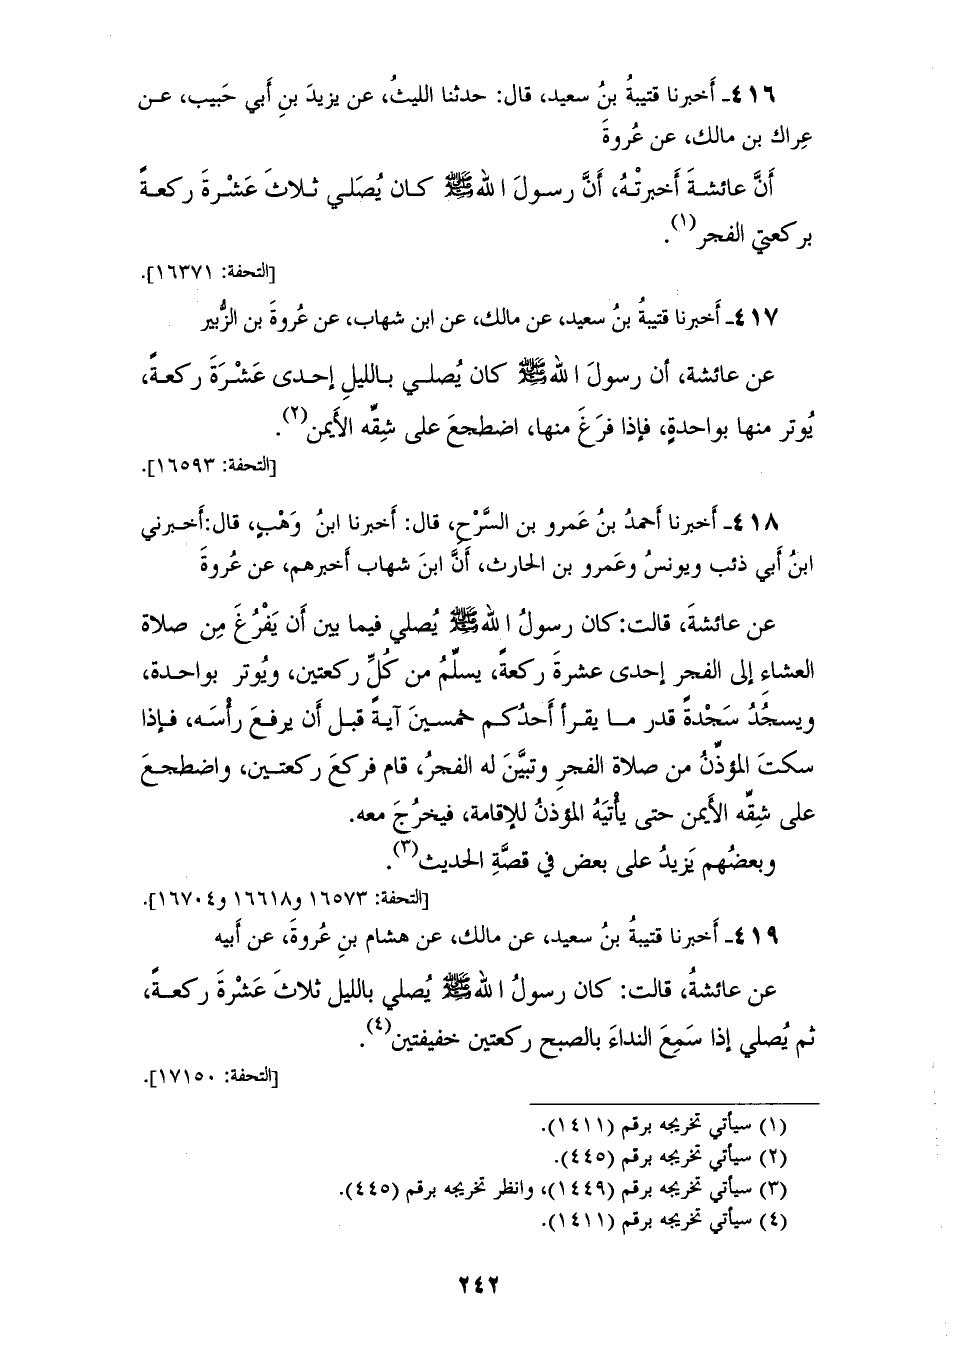 ٤١٦ـ أَخبرنا قتيبةُ بنُ سعيد، قال: حدثنا الليثُ، عن يزيدَ بنِ أَبي حَبيب، عـن
عِراك بن مالك، عن عُروةَ
أَنَّ عائشـةَ أَخبرتْـهُ، أَنَّ رسـولَ الله ﷺ كـان يُصَلـي ثـلاثَ عَشْـرةَ ركعـةً
بركعتيِ الفجر(١).
[التحفة: ١٦٣٧١].
٤١٧ـ أَخبرنا قتيبةُ بنُ سعيد، عن مالك، عن ابن شهاب، عن عُروةَ بن الزُّبير
عن عائشة، أن رسولَ الله ﷺ كان يُصلـي بـالليلِ إحـدى عَشْـرَةَ ركعـةً،
يُوتر منها بواحدةٍ، فإذا فرَغَ منها، اضطجعَ على شقِّه الأَيمن(٢).
[التحفة: ١٦٥٩٣].
٤١٨ـ أَخبرنا أَحمدُ بنُ عَمرو بن السَّرْحِ، قال: أَخبرنا ابنُ وَهْبٍ، قال:أَخـبرني
ابنُ أَبي ذئب ويونسُ وعَمرو بن الحارث، أَنَّ ابنَ شهاب أَخبرهم، عن عُروةَ
عن عائشةَ، قالت:كان رسولُ الله ﷺ يُصلي فيما بين أَن يَفْرُغَ مِن صلاة
العشاءِ إلى الفجر إحدى عشرةَ ركعةً، يسلِّمُ من كُلِّ ركعتين، ويُوتر بواحـدة،
ويسجُدُ سَجْدةً قدر مـا يقـرأ أَحدُكـم خمسـينَ آيـةً قبـل أَن يرفـعَ رأْسَـه، فـإذا
سكتَ المؤذِّنُ من صلاة الفجرِ وتبيَّنَ له الفجرُ، قام فركعَ ركعتـين، واضطجـعَ
على شقِّه الأَيمن حتى يأْتيَهُ المؤذنُ للإقامة، فيخرُجَ معه.
وبعضُهم يَزيدُ على بعض في قصَّةِ الحديث(٣).
[التحفة: ١٦٥٧٣ و١٦٦١٨ و١٦٧٠٤].
٤١٩ـ أَخبرنا قتيبةُ بنُ سعيد، عن مالك، عن هشام بنِ عُروةَ، عن أَبيه
عن عائشةُ، قالت: كان رسولُ الله ﷺ يُصلي بالليل ثلاثَ عَشْرةَ ركعـةً،
ثم يُصلي إذا سَمِعَ النداءَ بالصبح ركعتين خفيفتين(٤).
[التحفة: ١٧١٥٠].
(١) سيأتي تخريجه برقم (١٤١١).
(٢) سيأتي تخريجه برقم (٤٤٥).
(٣) سيأتي تخريجه برقم (١٤٤٩)، وانظر تخريجه برقم (٤٤٥).
(٤) سيأتي تخريجه برقم (١٤١١).
٢٤٢